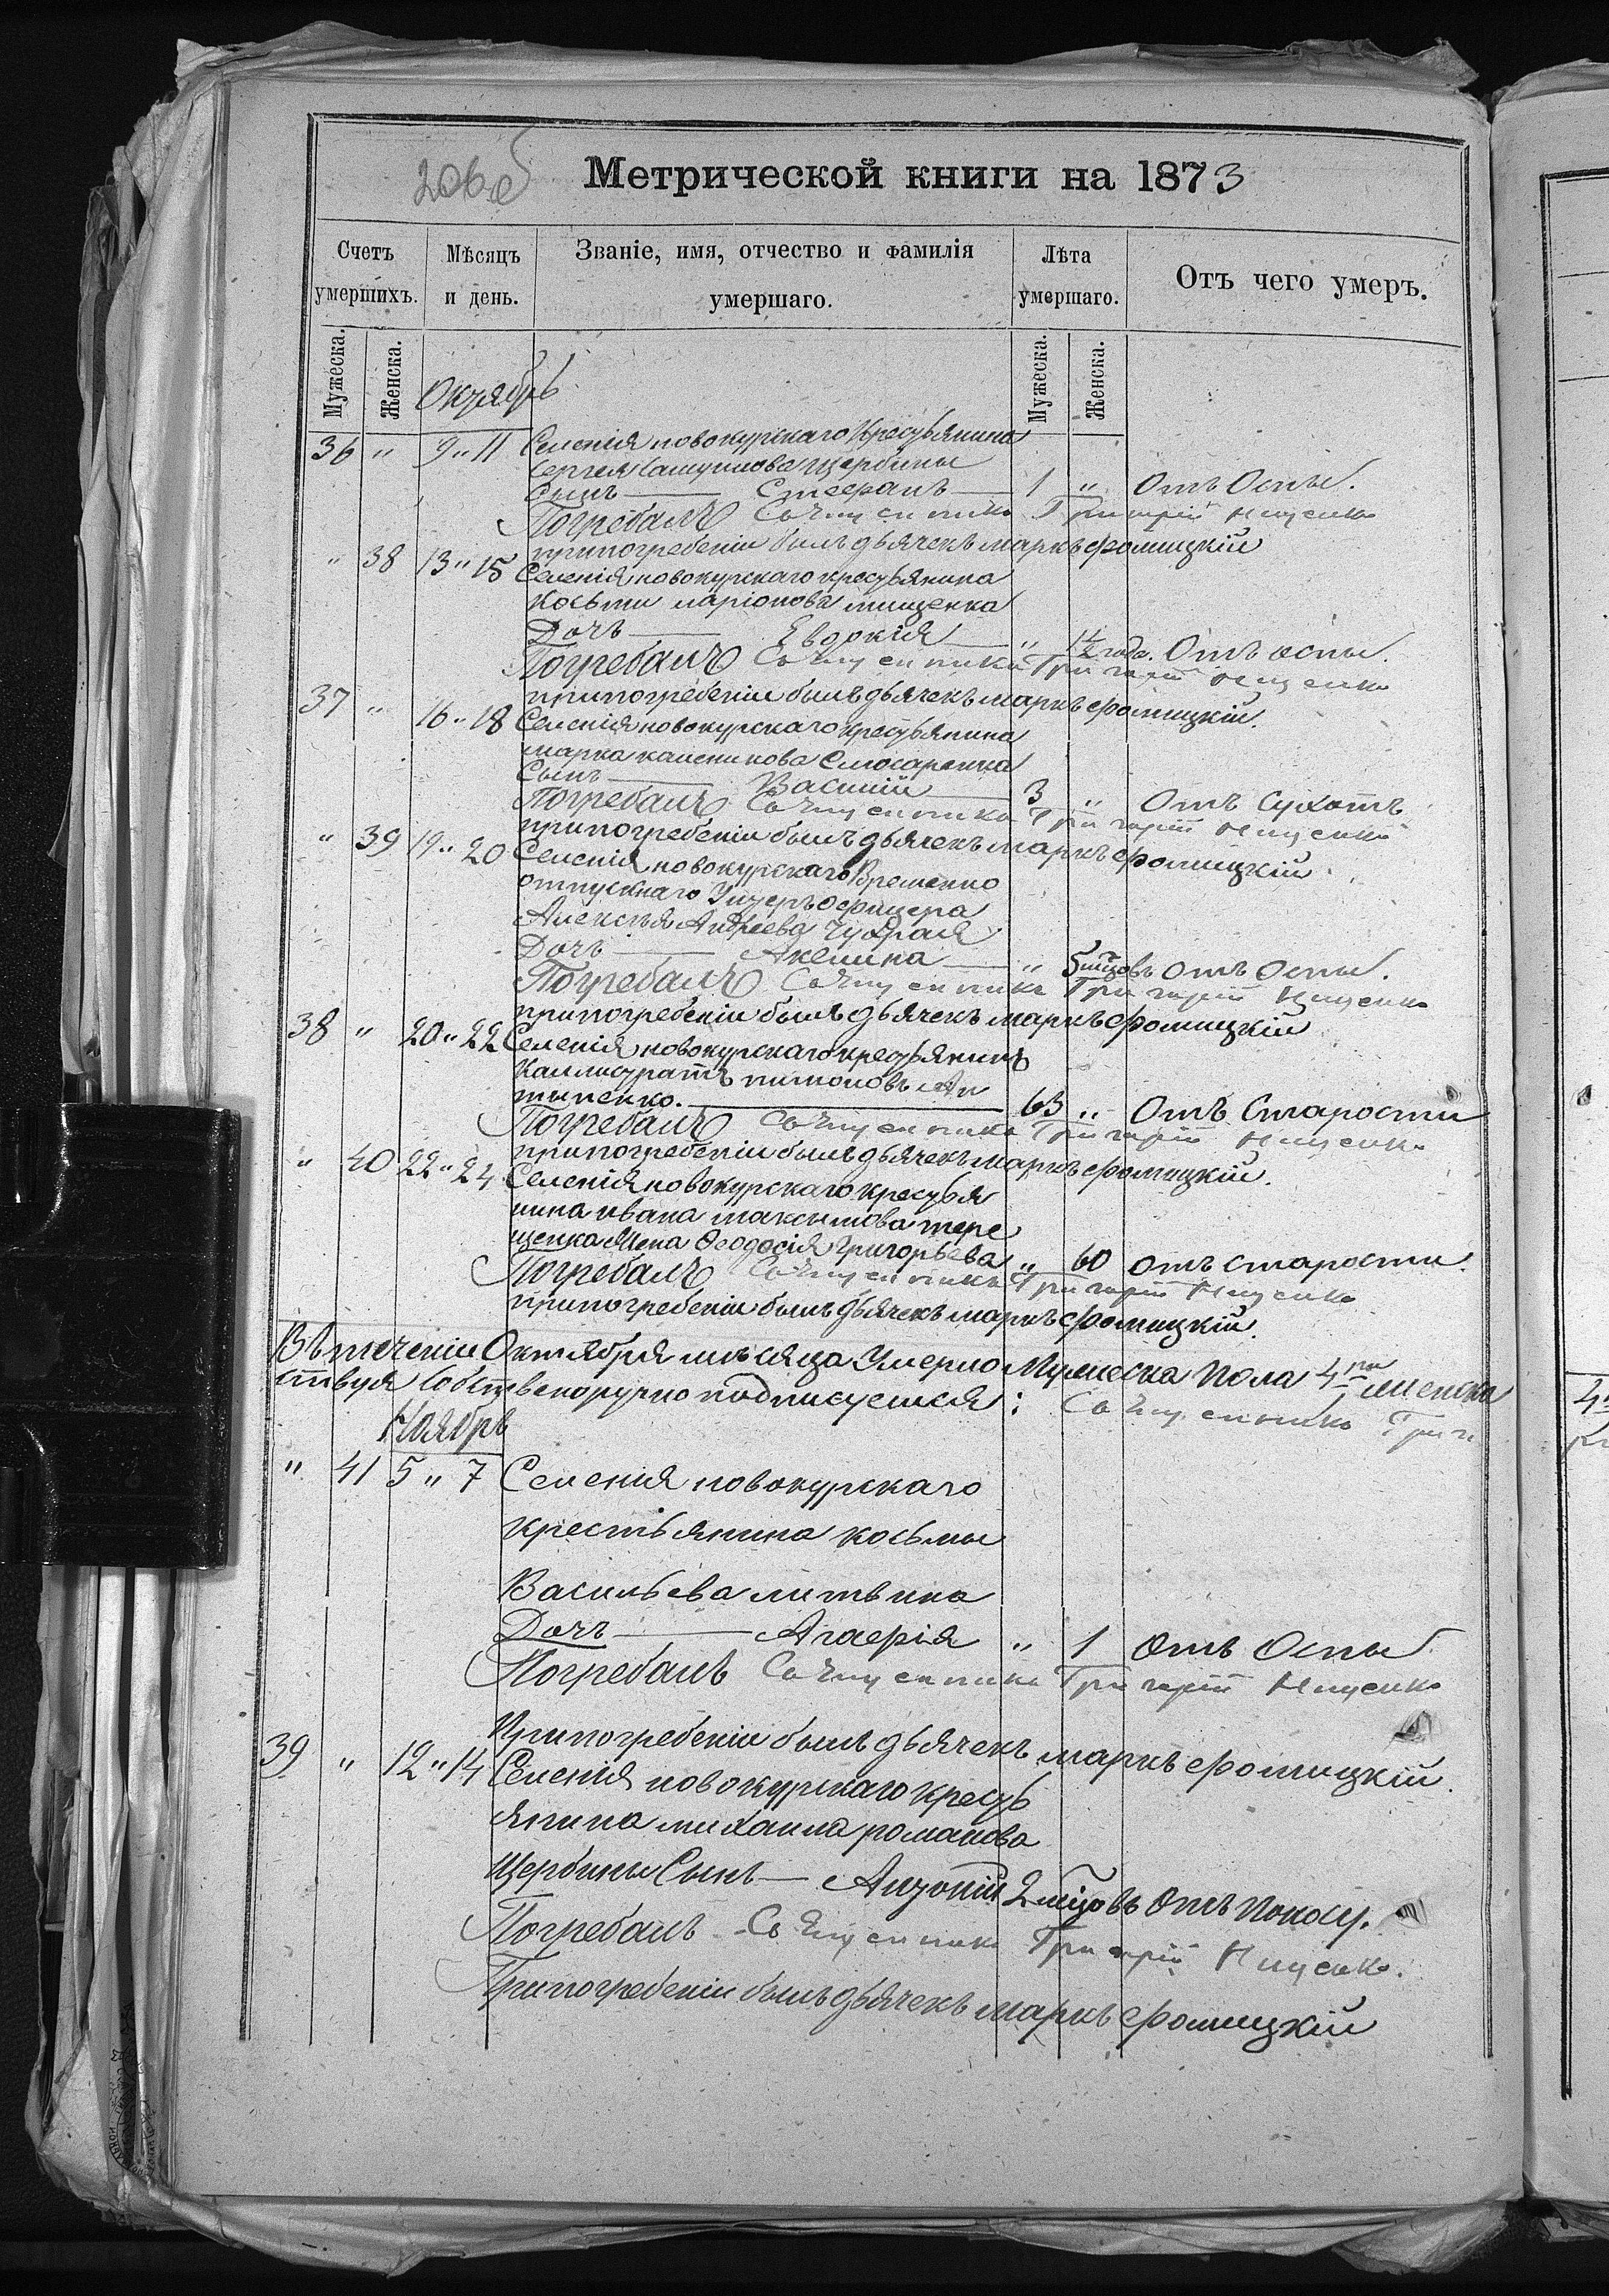 206 об
Метрической книги на 1873
Счетъ умершихъ. Мѣсяцъ и день. Званіе, имя, отчество и фамилія умершаго. Лѣта умершаго. Отъ чего умеръ.
Мужеска. Женска. Мужеска. Женска.
Октябрь
36 " 9 " 11 Селенія новокурскаго крестьянина
Сергея Щербины
Сынъ — Стефанъ — 1 " Отъ Оспы.
Погребалъ Священникъ Григорій Ищенко
при погребеніи былъ дьячекъ маркъ фомицкій
" 38 13 " 15 Селенія новокурскаго крестьянина
Косьми ларіонова тищенка
Дочь — Евдокія — " 1½ года. Отъ оспы.
Погребалъ Священникъ Григорій Ищенко
при погребеніи былъ дьячекъ маркъ фомицкій.
37 " 16 " 18 Селенія новокурскаго крестьянина
марка каленикова Слюсаренка
Сынъ — Василій — 3 " Отъ Сухотъ
Погребалъ Священникъ Григорій Ищенко
при погребеніи былъ дьячекъ маркъ фомицкій.
" 39 19 " 20 Селенія новокурскаго Временно
отпускнаго Унтеръ офицера
Алексѣя Андреева Чухрая
Дочь — Акелина — " 5 мѣцовъ отъ Оспы.
Погребалъ Священникъ Григорій Ищенко
при погребеніи былъ дьячекъ маркъ фомицкій
38 " 20 " 22 Селенія новокурскаго крестьянинъ
Каллистратъ пимоновъ Ан
типенко. — 63 " Отъ Старости
Погребалъ Священникъ Григорій Ищенко
при погребеніи былъ дьячекъ маркъ фомицкій.
" 40 22 " 24 Селенія новокурскаго крестья
нина ивана максимова тере
щенка Жена Феодосія Григорьева " 60 отъ старости.
Погребалъ Священникъ Григорій Ищенко
при погребеніи былъ дьячекъ маркъ фомицкій.
Въ теченіи Октября мѣсяца Умерло Мужеска Пола 4ри женска
ствуя Собственоручно подписуемся: Священникъ Григ
Ноябрь
" 41 5 " 7 Селенія новокурскаго
крестьянина косьмы
Васильева литвина
Дочь — Агафія " 1 Отъ Оспы
Погребалъ Священникъ Григорій Ищенко
При погребеніи былъ дьячекъ маркъ фомицкій.
39 " 12 " 14 Селенія новокурскаго кресть
янина михаила романова
Щербины Сынъ — Антоній 2 мѣцовъ Отъ Поносу.
Погребалъ Священникъ Григорій Ищенко.
При погребеніи былъ дьячекъ маркъ фомицкій